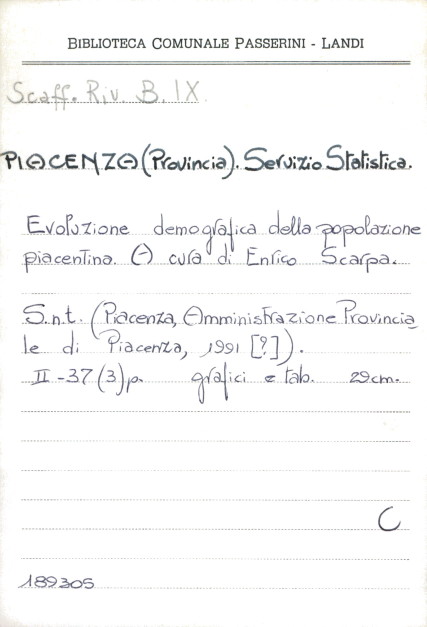 BIBLIOTECA COMUNALE PASSERINI - LANDI
Scaff. Riv. B. IX
PIACENZA (Provincia). Servizio Statistica.
Evoluzione demografica della popolazione
piacentina. A cura di Enrico Scarpa.
S.n.t. (Piacenza, Amministrazione Provincia
le di Piacenza, 1991 [?]).
II-37 (3) p. grafici e tab. 29 cm.
C
189305